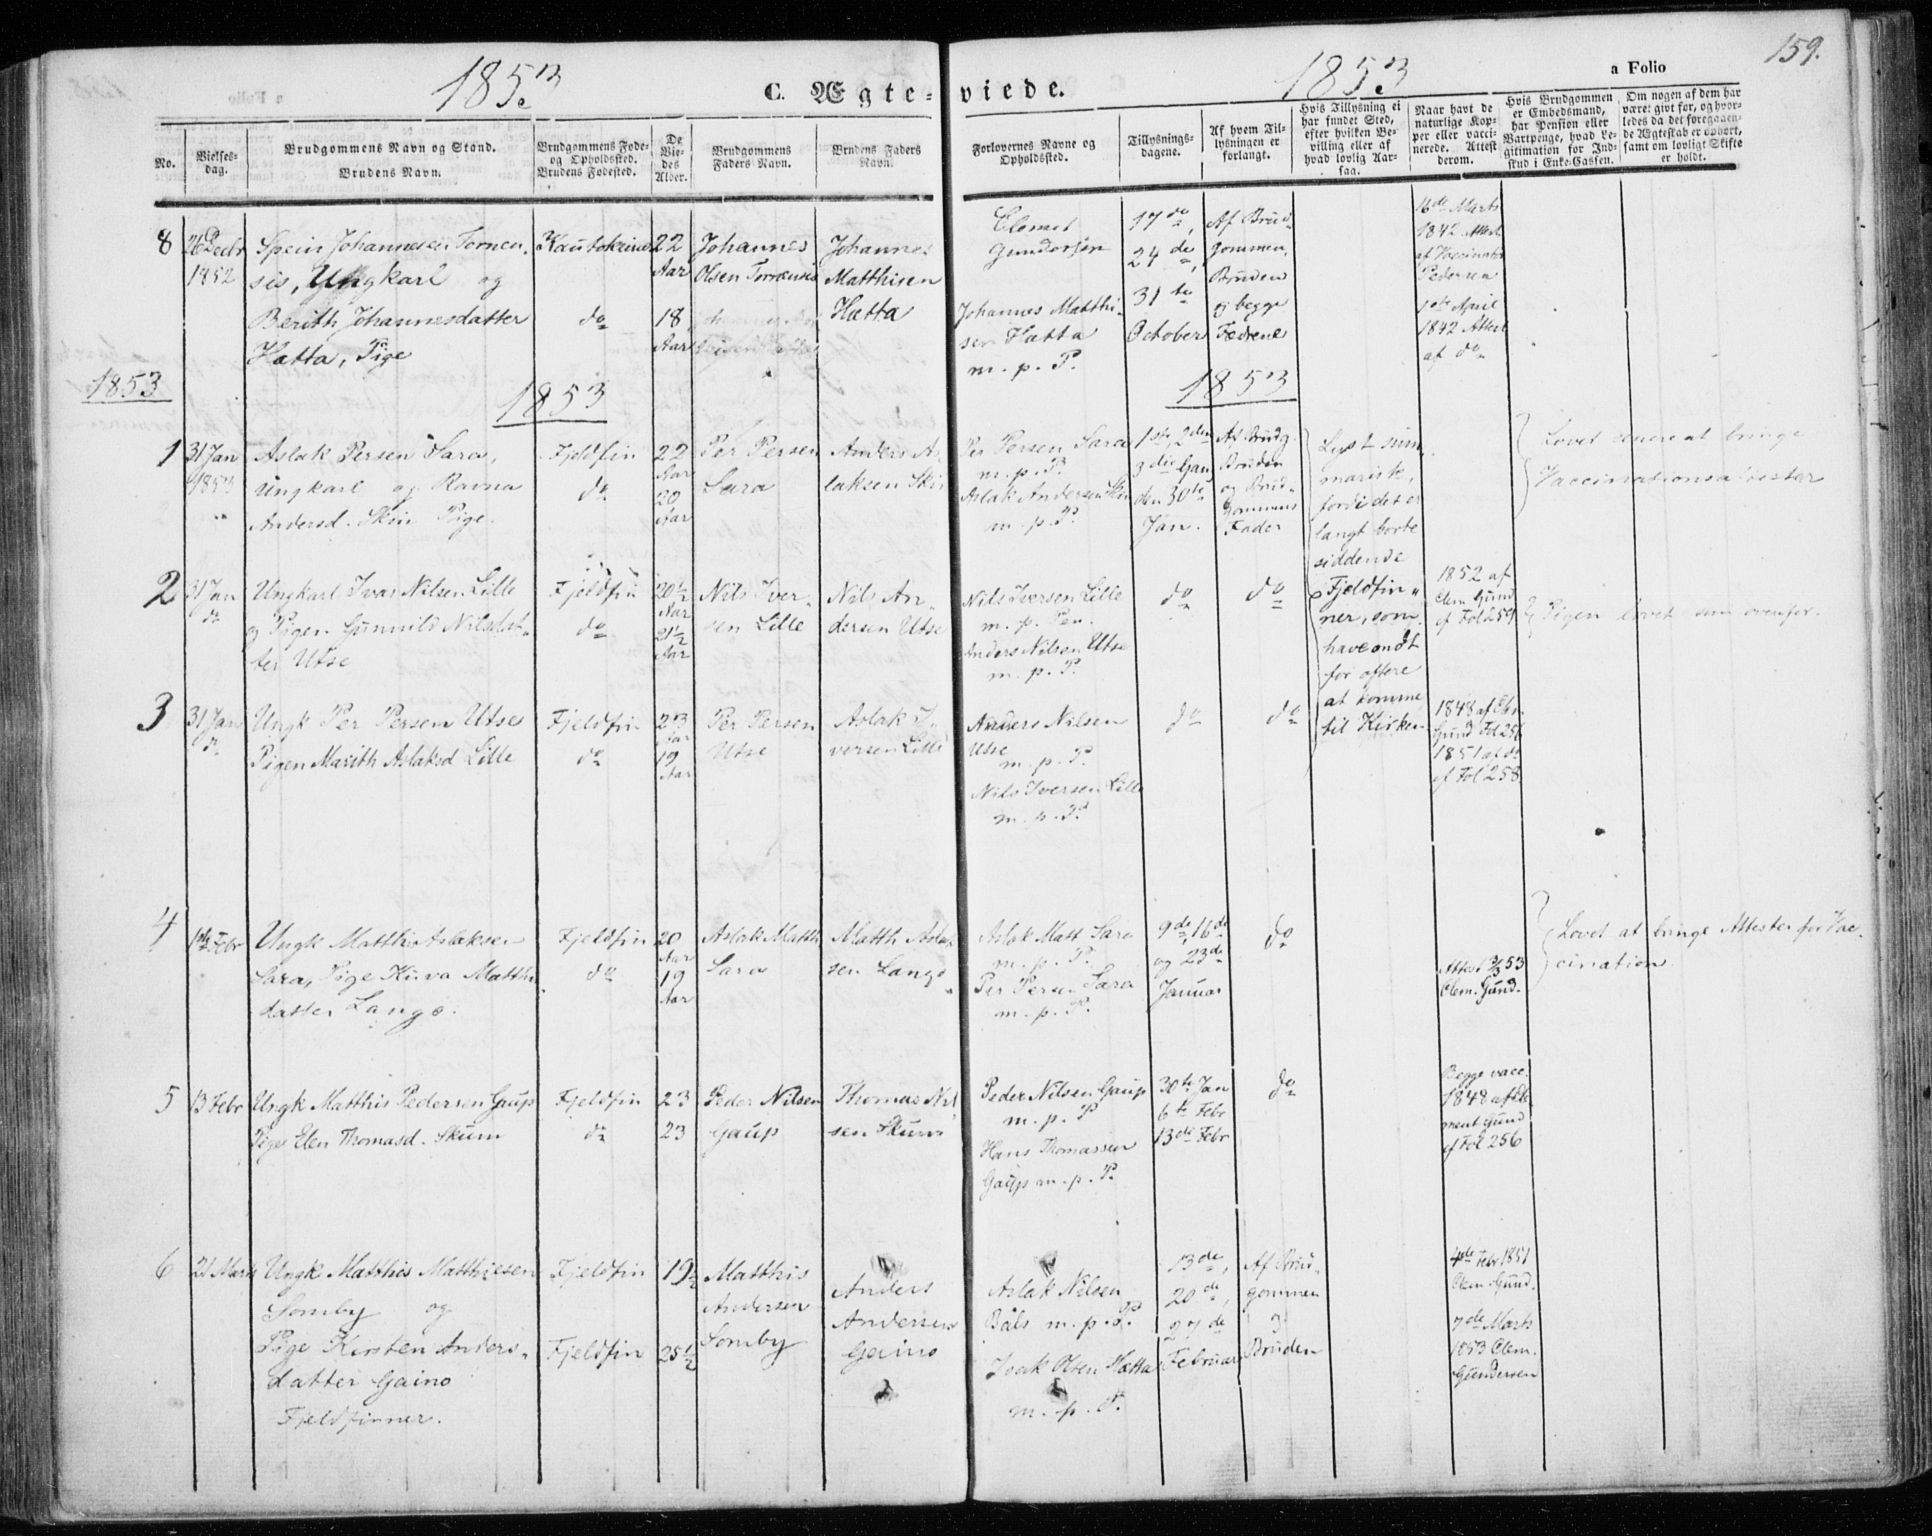 159.
1853
1853
a Folio
C. Ægte-
viede.
No.
Vielses-
dag.
Brudgommens Navn og Stand.
Brudens Navn.
Brudgommens Føde-
og Opholdssted.
Brudens Fødested.
De
Vie-
des
Alder.
Brudgommens
Faders Navn.
Brudens Faders
Navn.
Forlovernes Navne og
Opholdssted.
Tillysnings-
dagene.
Af hvem Til-
lysningen er
forlangt.
Hvis Tillysning ei
har fundet Sted,
efter hvilken Be-
villing eller af
hvad lovlig Aar-
saa.
Naar havt de
naturlige Kop-
per eller vacci-
nerede. Attest
derom.
Hvis Brudgommen
er Embedsmand,
har Pension eller
Vartpenge, hvad Le-
gitimation for Ind-
skud i Enke-Cassen.
Om nogen af dem har
været givt før, og hvor-
ledes da det foregaaen-
de Ægteskab er ophørt,
samt om lovligt Skifte
er holdt.
8
26 Decbr
1852
Spein Johannesen Tornen-
sis, Ungkarl og
Berith Johannesdatter
Hætta, Pige
Kautokeino
do
22
Aar
18
Aar
Johannes
Olsen Tornensis
Johannes
Matthisen
Hætta
Clemet
Gundersen
Johannes Matthi-
sen Hætta
m. p. P.
17 de,
24 de,
31 te
October
Af Brud-
gommen,
Bruden
og begge
Fædrene
16de Marts
1842 Attest
af Vaccinatør
Pedersen
1ste April
1842 Attest
af do
1853
1853
1853
1
31 Jan
1853
Aslak Persen Sara,
Ungkarl og Ravna
Andersd. Skin Pige.
Fjeldfin
do
22
Aar
20
Aar
Per Persen
Sara
Anders As-
laksen Skin
Per Persen Sara
m. p. P.
Aslak Andersen Skin
m. p. P.
1ste, 2den
3die Gang
den 30te
Jan.
Af Brudg.
Bruden
og Brud-
gommens
Fader
Lyst sum-
marisk,
fordi det er
langt borte
siddende
Fjeldfin-
ner, som
have ondt
for oftere
at komme
til Kirken
Lovet senere at bringe
Vaccinationsattester
2
31 Jan
do
Ungkarl Ivar Nilsen Lille
og Pigen Gunnild Nilsdat-
ter Utse
Fjeldfin
do
20½
Aar
21½
Aar
Nils Iver-
sen Lille
Nils An-
dersen Utse
Nils Iversen Lille
m. p. Pen.
Anders Nilsen Utse
m. p. P.
do
do
1852 af
Clem. Gund
cf Fol 259
Pigen lovet som ovenfor.
3
31 Jan
do
Ungk Per Persen Utse
Pigen Marith Aslaksd Lille
Fjeldfin
do
23
Aar
19
Aar
Per Persen
Utse
Aslak I-
versen Lille
Anders Nilsen
Utse
m. p. P.
Nils Iversen Lille
m. p. P.
do
do
1848 af Clem
Gund Fol 256
1851 af do
cf Fol 258
4
1ste Febr
Ungk Matthis Aslaksen
Sara, Pige Kirva Matthis-
datter Lango.
Fjeldfin
do
20
Aar
19
Aar
Aslak Matth
Sara
Matth Aslak-
sen Lango
Aslak Matt Sara
m. p. P.
Per Persen Sara
m. p. P.
9de, 16de
og 23de
Januar
do
Attest 3/3 53
Clem. Gund.
Lovet at bringe Attester for Vac-
cination.
5
13 Febr
Ungk Matthis Pedersen Gaup
Pige Elen Thomasd. Skum
Fjeldfin
do
23
23
Peder Nilsen
Gaup
Thomas Nil-
sen Skum
Peder Nilsen Gaup
m. p. P
Hans Thomassen
Gaup m. p. P.
30te Jan
6te Febr
13de Febr
do
Begge vacc.
1848 af Cle
ment Gund
cf Fol 256
6
21 Marts
Ungk Matthis Matthiesen
Somby og
Pige Kirsten Anders-
datter Gaino
Fjeldfinner.
Fjeldfin
Fjeldfin
19½
25½
Matthis
Andersen
Somby
Anders
Andersen
Gaino
Aslak Nilsen
Båls m. p. P.
Isak Olsen Hætta
m. p. P.
13de,
20de,
27de
Februar
Af Brud-
gommen
og
Bruden
4de Febr 1851
Clem. Gund.
7de Marts
1853 Clem.
Gundersen